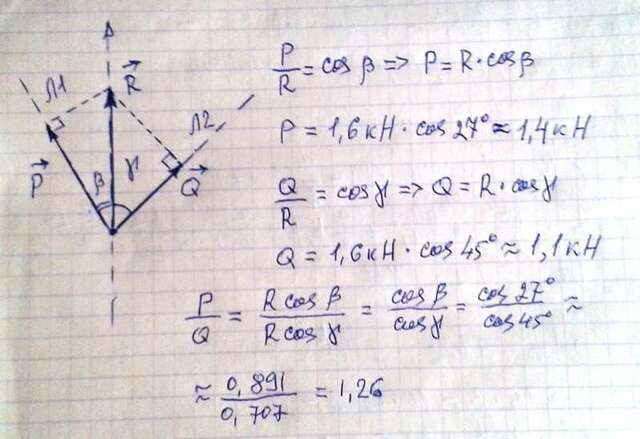 P
Л1
R⃗
Л2
P⃗
β
γ
Q⃗
P/R = cos β => P = R · cos β
P = 1,6 кН · cos 27° ≈ 1,4 кН
Q/R = cos γ => Q = R · cos γ
Q = 1,6 кН · cos 45° ≈ 1,1 кН
P/Q = R cos β / R cos γ = cos β / cos γ = cos 27° / cos 45° ≈
≈ 0,891 / 0,707 = 1,26